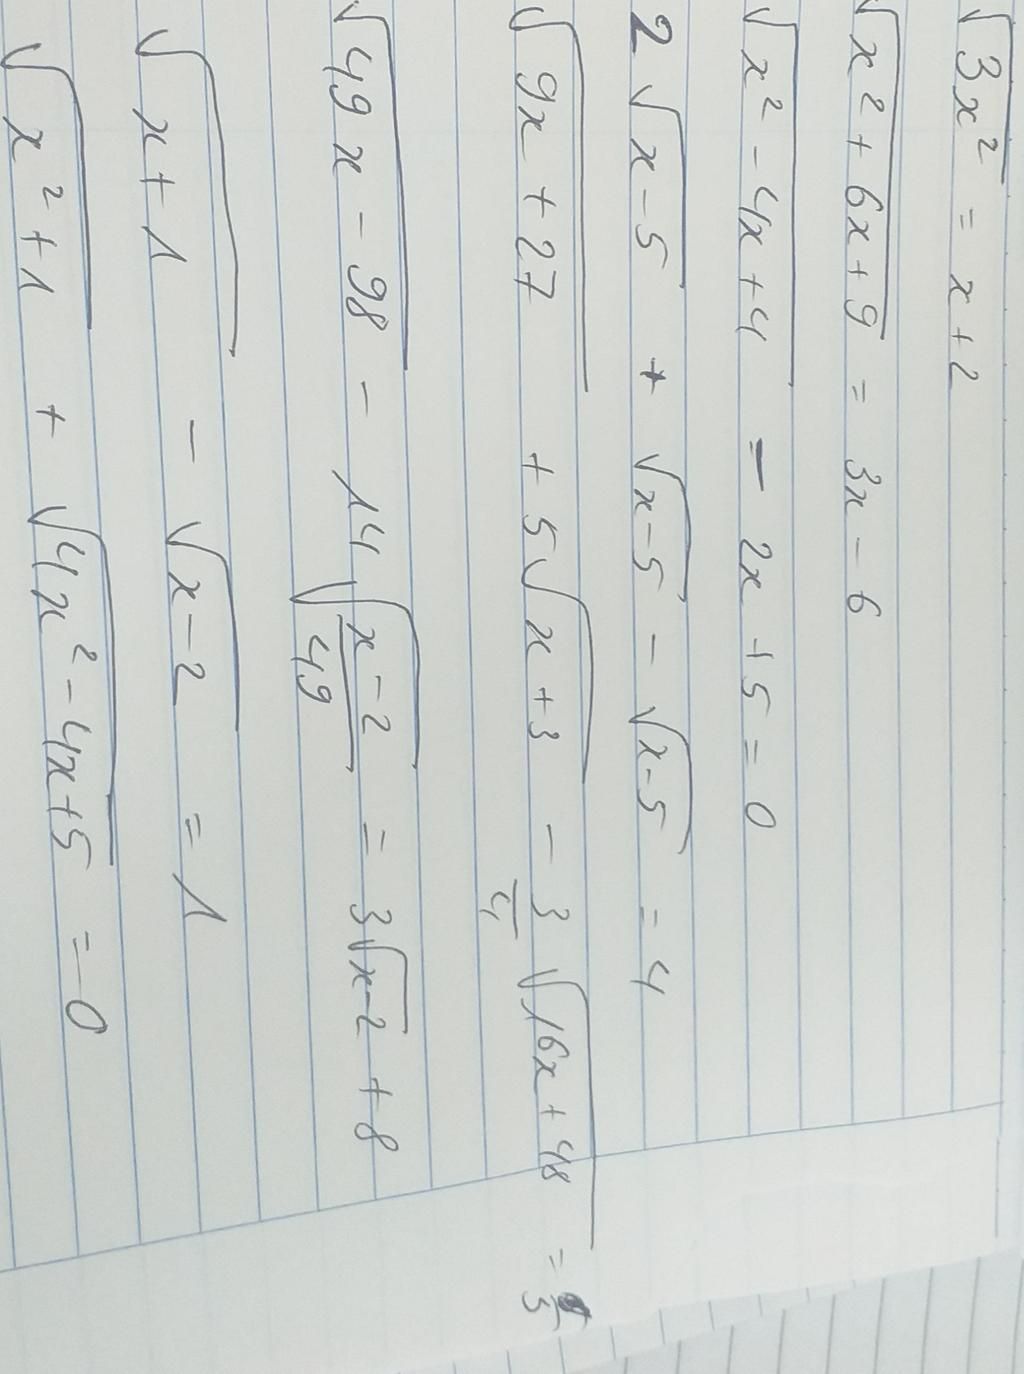 √3x² = x + 2
√x² + 6x + 9 = 3x - 6
√x² - 4x + 4 - 2x + 5 = 0
2√x - 5 + √x - 5 - √x - 5 = 4
√9x + 27 + 5√x + 3 - 3/4 √16x + 48 = 5
√49x - 98 - 14√x - 2/49 = 3√x - 2 + 8
√x + 1 - √x - 2 = 1
√x² + 1 + √4x² - 4x + 5 = 0